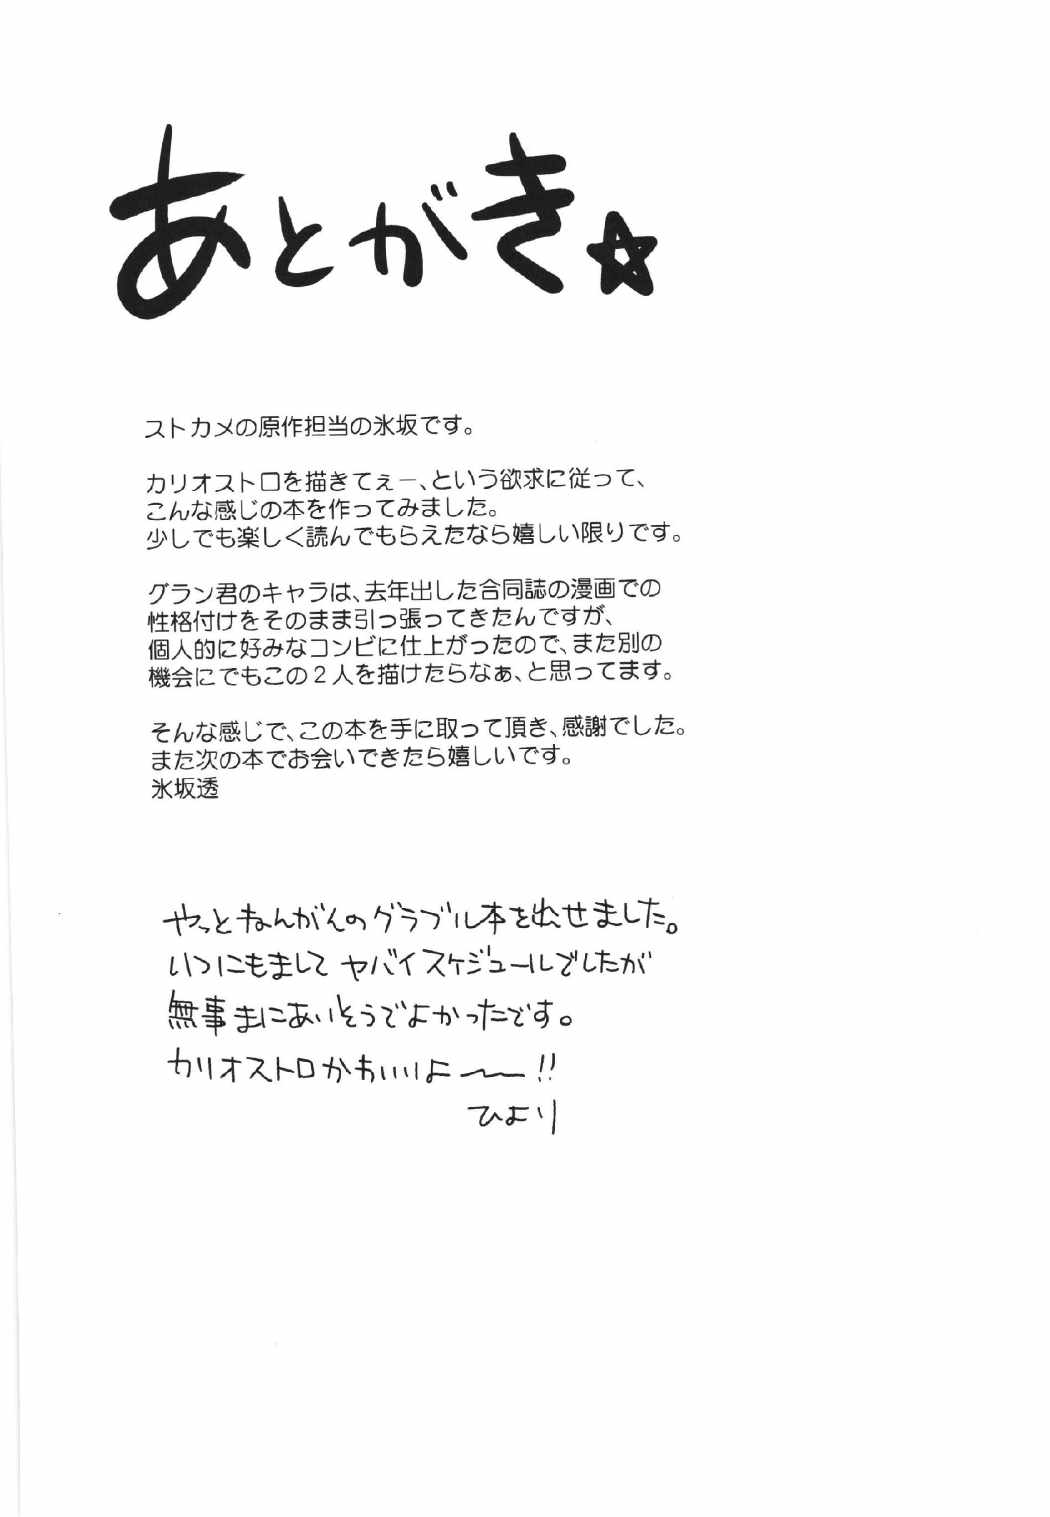 あとがき☆
ストカメの原作担当の氷坂です。
カリオストロを描きてぇー、という欲求に従って、
こんな感じの本を作ってみました。
少しでも楽しく読んでもらえたなら嬉しい限りです。
グラン君のキャラは、去年出した合同誌の漫画での
性格付けをそのまま引っ張ってきたんですが、
個人的に好みなコンビに仕上がったので、また別の
機会にでもこの２人を描けたらなぁ、と思ってます。
そんな感じで、この本を手に取って頂き、感謝でした。
また次の本でお会いできたら嬉しいです。
氷坂透
やっとねんがんのグラブル本を出せました。
いつにもまして ヤバイスケジュールでしたが
無事まにあいそうでよかったです。
カリオストロかわいいよ〜〜!!
ひより